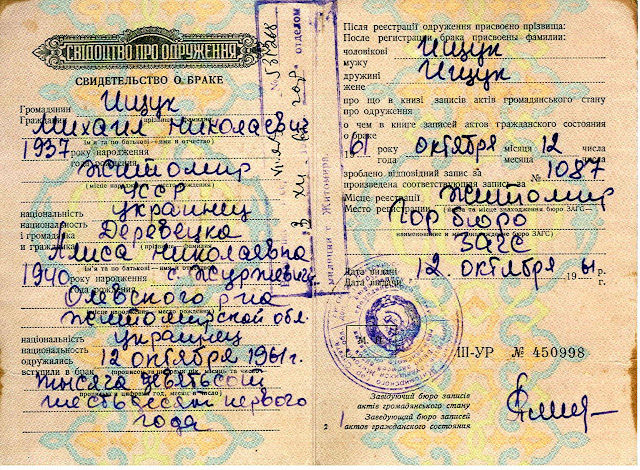 СВІДОЦТВО ПРО ОДРУЖЕННЯ
СВИДЕТЕЛЬСТВО О БРАКЕ
Громадянин
Гражданин
Ищук
Михаил Николаевич
1937
року народження
года рождения
Житомир
УССР
національність
национальность
украинец
і громадянка
и гражданка
Деревецка
Алиса Николаевна
1940
року народження
года рождения
Олевского р-на
Житомирской обл.
національність
национальность
украинец
одружились
вступили в брак
12 октября 1961г.
тысяча девятьсот
шестьдесят первого
года
отделом
Після реєстрації одруження присвоєно прізвища:
После регистрации брака присвоены фамилии:
чоловікові
мужу
Ищук
дружині
жене
Ищук
про що в книзі записів актів громадянського стану
про одруження
о чем в книге записей актов гражданского состояния
о браке
1961 року октября місяця 12 числа
года месяца числа
зроблено відповідний запис за
произведена соответствующая запись за
№ 1087
Місце реєстрації
Место регистрации
Житомир
Гор бюро
ЗАГС
Дата видачі
Дата выдачи
12. октября 1961 р.
г.
III-УР № 450998
Завідуючий бюро записів
актів громадянського стану
Заведующий бюро записей
актов гражданского состояния
2